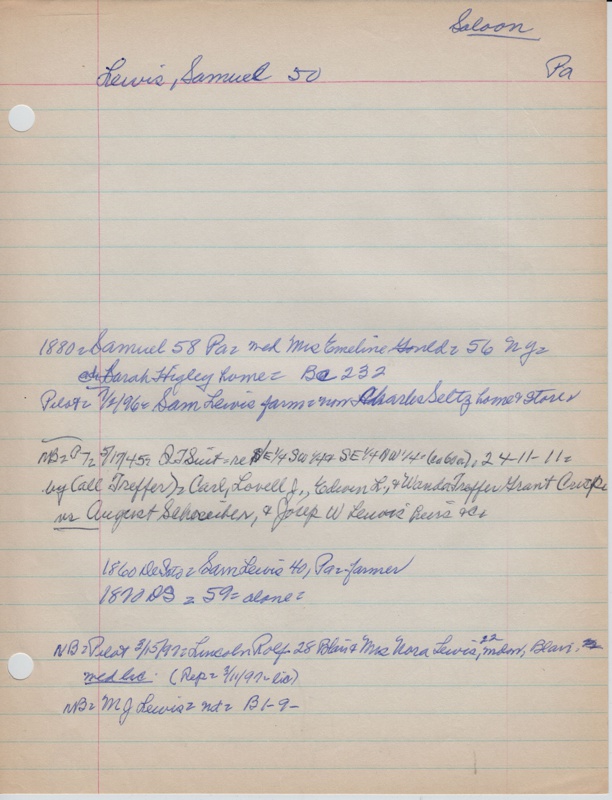 Saloon
Lewis, Samuel 50 Pa
1880= Samuel 58 Pa= wed Mrs Emeline Gould= 56 N.Y=
Sarah Higley home= B 232
Pilot= 96= Sam Lewis farm= now Charles Seltz home & store
NB= 45= Q T Suit= re E¼ SW¼ & SE¼ NW¼= 24-11-11=
by Call Treffer)= Carl, Lovell J., Edwin L., & Wanda Treffer Grant
vs August Schreiber, & W Lewis heirs &c
1860 DeSoto= Sam Lewis 40, Pa= farmer
1870 DS = 59= alone=
NB= Pilot 3/15/97= Lincoln Rolf 28 Blair & Mrs Nora Lewis, 22, Blair,
wed lic. (Rep= 3/11/97= lic)
NB= M J Lewis= nd= B 1-9-